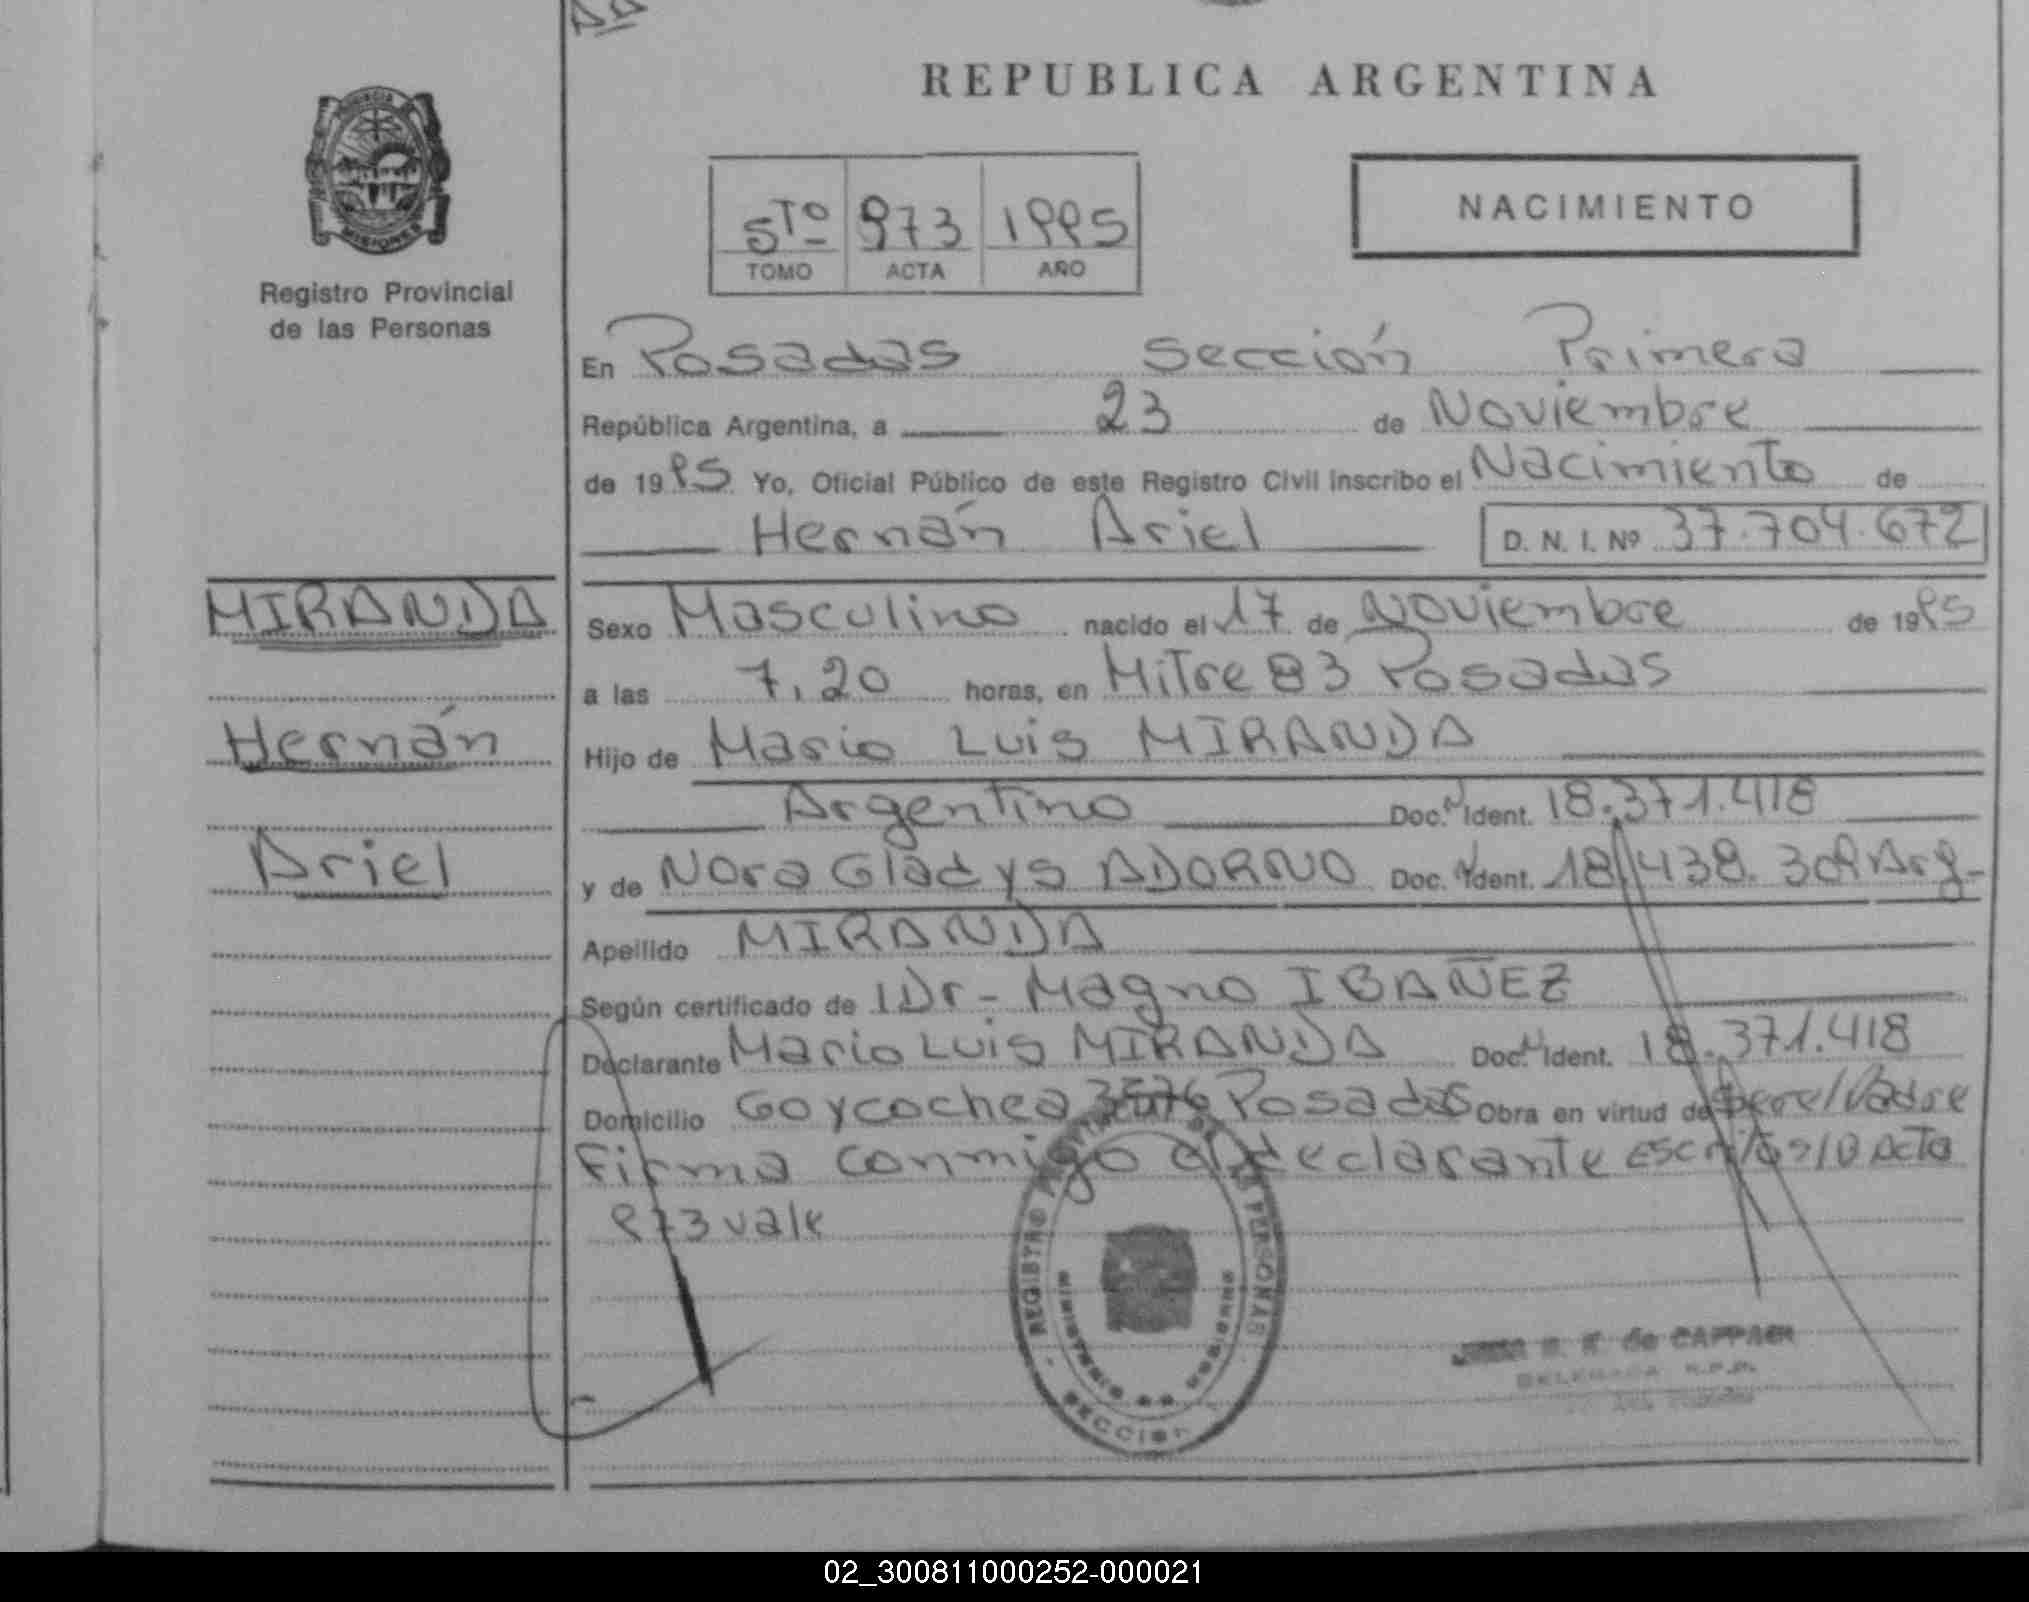 REPUBLICA ARGENTINA
MISIONES
Registro Provincial
de las Personas
5to 973 1995
TOMO ACTA AÑO
NACIMIENTO
En Posadas Sección Primera
República Argentina, a 23 de Noviembre
de 1995 Yo, Oficial Público de este Registro Civil inscribo el Nacimiento de
Hernán Ariel D. N. I. Nº 37.704.672
MIRANDA
Hernán
Ariel
Sexo Masculino nacido el 17 de Noviembre de 1995
a las 7,20 horas, en Mitre 83 Posadas
Hijo de Mario Luis MIRANDA
Argentino Doc. N Ident. 18.371.418
y de Nora Gladys ADORNO Doc. N Ident. 18.438.309 Arg.
Apellido MIRANDA
Según certificado de Dr- Magno IBAÑEZ
Declarante Mario Luis MIRANDA Doc. N Ident. 18.371.418
Domicilio Goycochea 3576 Posadas Obra en virtud de ser el Padre
Firma conmigo el declarante Acta
973 vale
REGISTRO DE LAS PERSONAS
MINISTERIO DE GOBIERNO
SECCION
de CAPPAGLI
DELEGADA R.P.P.
02_300811000252-000021